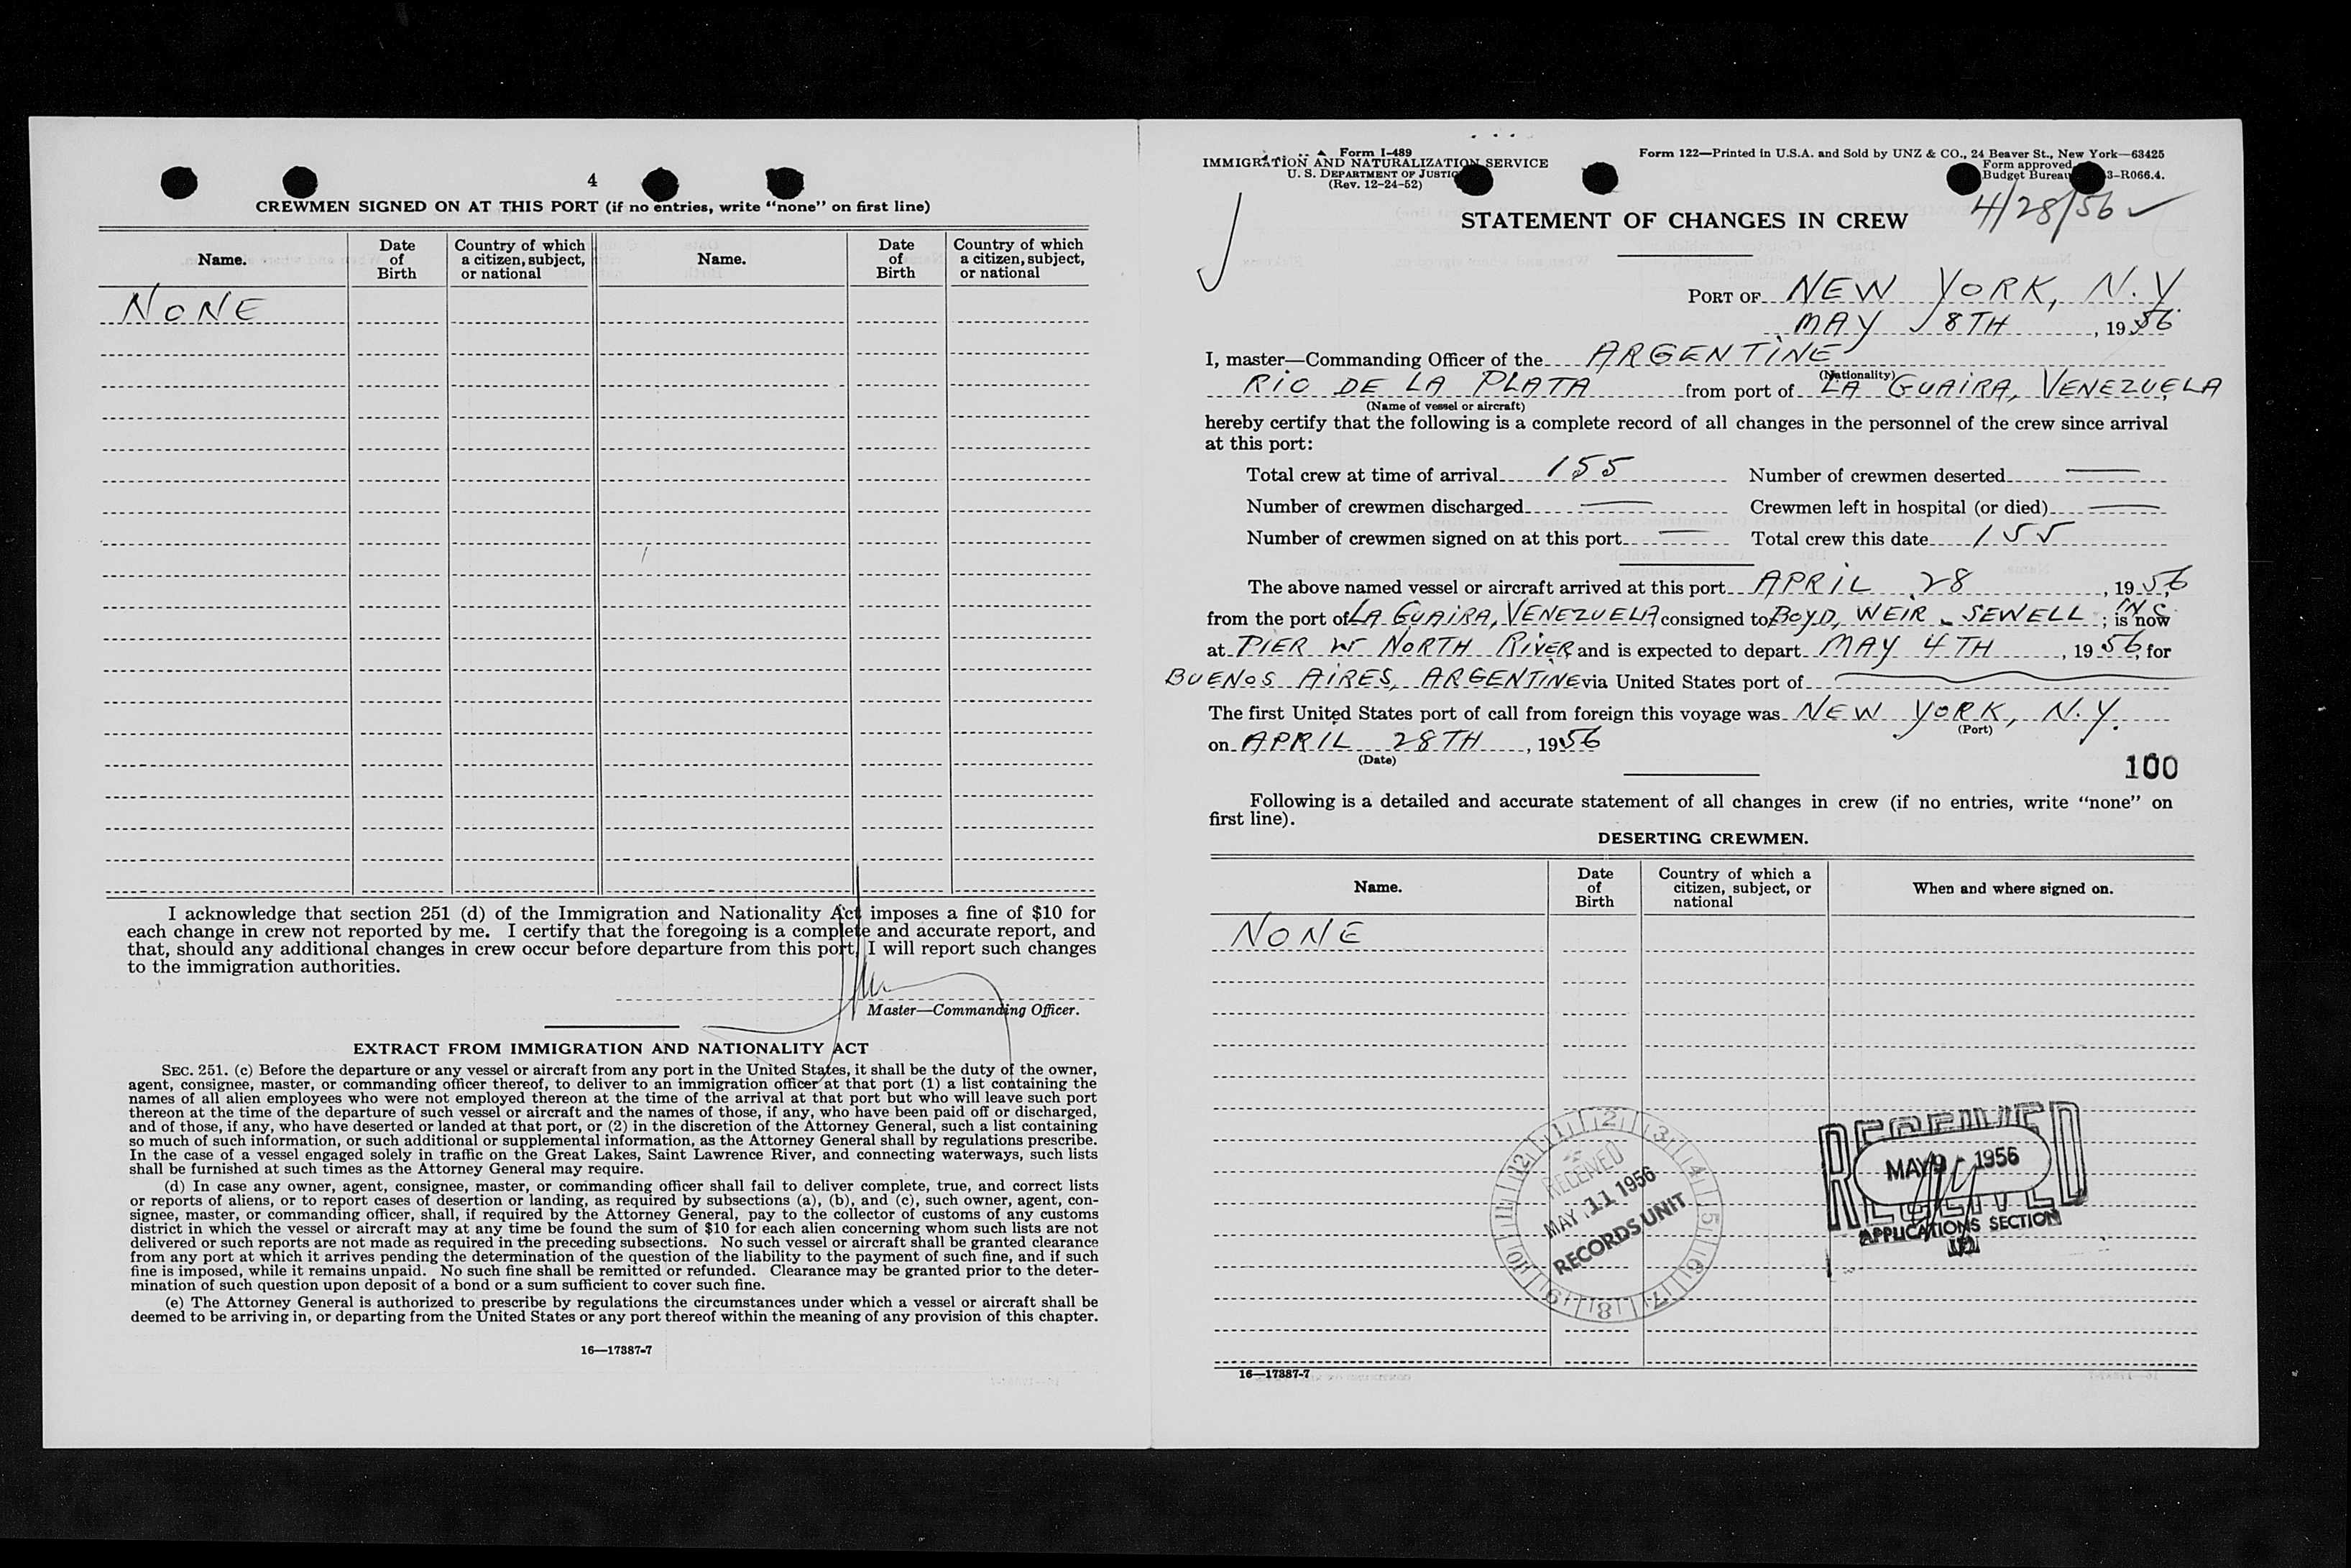 4
CREWMEN SIGNED ON AT THIS PORT (if no entries, write “none” on first line)
Name. Date of Birth Country of which a citizen, subject, or national Name. Date of Birth Country of which a citizen, subject, or national
NONE
I acknowledge that section 251 (d) of the Immigration and Nationality Act imposes a fine of $10 for
each change in crew not reported by me. I certify that the foregoing is a complete and accurate report, and
that, should any additional changes in crew occur before departure from this port, I will report such changes
to the immigration authorities.
Master—Commanding Officer.
EXTRACT FROM IMMIGRATION AND NATIONALITY ACT
SEC. 251. (c) Before the departure or any vessel or aircraft from any port in the United States, it shall be the duty of the owner,
agent, consignee, master, or commanding officer thereof, to deliver to an immigration officer at that port (1) a list containing the
names of all alien employees who were not employed thereon at the time of the arrival at that port but who will leave such port
thereon at the time of the departure of such vessel or aircraft and the names of those, if any, who have been paid off or discharged,
and of those, if any, who have deserted or landed at that port, or (2) in the discretion of the Attorney General, such a list containing
so much of such information, or such additional or supplemental information, as the Attorney General shall by regulations prescribe.
In the case of a vessel engaged solely in traffic on the Great Lakes, Saint Lawrence River, and connecting waterways, such lists
shall be furnished at such times as the Attorney General may require.
(d) In case any owner, agent, consignee, master, or commanding officer shall fail to deliver complete, true, and correct lists
or reports of aliens, or to report cases of desertion or landing, as required by subsections (a), (b), and (c), such owner, agent, con-
signee, master, or commanding officer, shall, if required by the Attorney General, pay to the collector of customs of any customs
district in which the vessel or aircraft may at any time be found the sum of $10 for each alien concerning whom such lists are not
delivered or such reports are not made as required in the preceding subsections. No such vessel or aircraft shall be granted clearance
from any port at which it arrives pending the determination of the question of the liability to the payment of such fine, and if such
fine is imposed, while it remains unpaid. No such fine shall be remitted or refunded. Clearance may be granted prior to the deter-
mination of such question upon deposit of a bond or a sum sufficient to cover such fine.
(e) The Attorney General is authorized to prescribe by regulations the circumstances under which a vessel or aircraft shall be
deemed to be arriving in, or departing from the United States or any port thereof within the meaning of any provision of this chapter.
16—17387-7
Form I-489
IMMIGRATION AND NATURALIZATION SERVICE
U. S. DEPARTMENT OF JUSTICE
(Rev. 12-24-52)
Form 122—Printed in U.S.A. and Sold by UNZ & CO., 24 Beaver St., New York—63425
Form approved
Budget Bureau 3-R066.4.
4/28/56 ✓
STATEMENT OF CHANGES IN CREW
PORT OF NEW YORK, N.Y
MAY 8TH, 1956
I, master—Commanding Officer of the ARGENTINE
(Nationality)
RIO DE LA PLATA from port of LA GUAIRA, VENEZUELA
(Name of vessel or aircraft)
hereby certify that the following is a complete record of all changes in the personnel of the crew since arrival
at this port:
Total crew at time of arrival 155 Number of crewmen deserted —
Number of crewmen discharged — Crewmen left in hospital (or died) —
Number of crewmen signed on at this port — Total crew this date 155
The above named vessel or aircraft arrived at this port APRIL 28, 1956
from the port of LA GUAIRA, VENEZUELA consigned to BOYD, WEIR - SEWELL INC; is now
at PIER NORTH RIVER and is expected to depart MAY 4TH, 1956, for
BUENOS AIRES, ARGENTINE via United States port of
The first United States port of call from foreign this voyage was NEW YORK, N.Y.
(Port)
on APRIL 28TH, 1956
(Date)
100
Following is a detailed and accurate statement of all changes in crew (if no entries, write “none” on
first line).
DESERTING CREWMEN.
Name. Date of Birth Country of which a citizen, subject, or national When and where signed on.
NONE
1 2 3 4 5 6 7 8 9 10 11 12
RECEIVED
MAY 11 1956
RECORDS UNIT
RECEIVED
MAY 9 - 1956
APPLICATIONS SECTION
16—17387-7